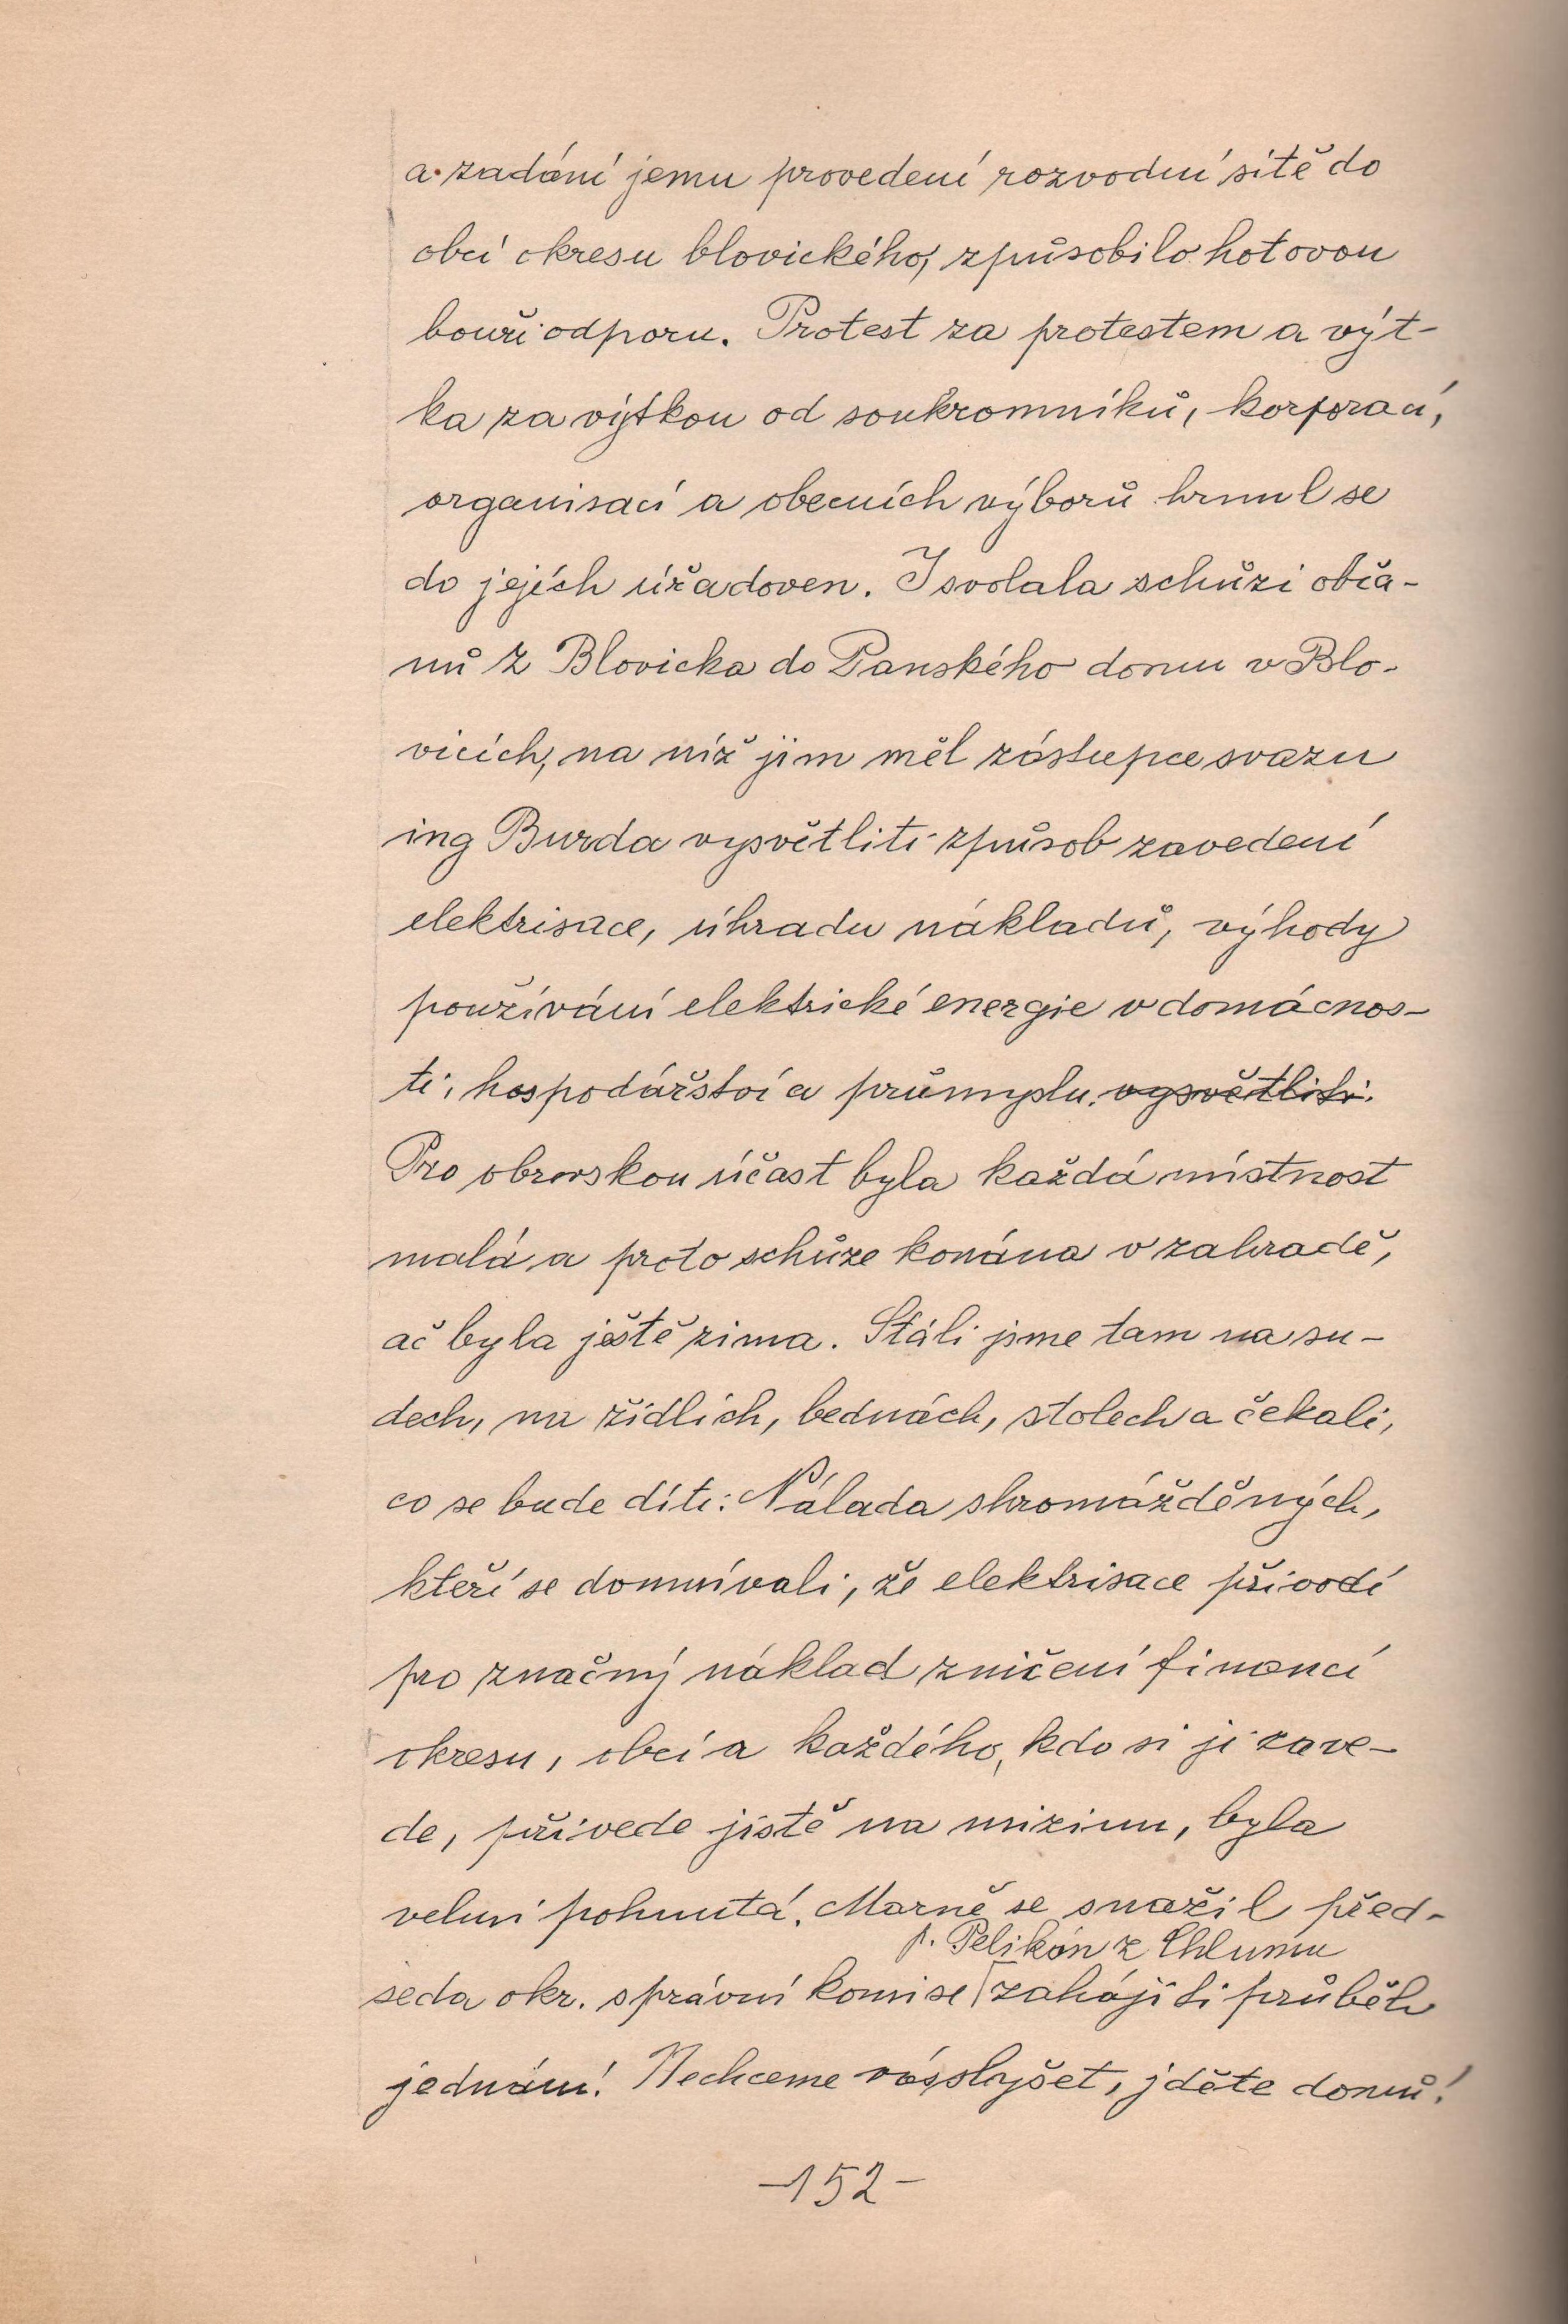 a zadání jemu provedení rozvodní sítě do
obcí okresu blovického, způsobilo hotovou
bouři odporu. Protest za protestem a výt-
ka za výtkou od soukromníků, korporací,
organisací a obecních výborů hrnul se
do jejích úřadoven. I svolala schůzi obča-
nů z Blovicka do Panského domu v Blo-
vicích, na níž jim měl zástupce svazu
ing Burda vysvětliti způsob zavedení
elektrisace, úhradu nákladů, výhody
používání elektrické energie v domácnos-
ti, hospodářství a průmyslu. vysvětliti.
Pro obrovskou účast byla každá místnost
malá a proto schůze konána v zahradě,
ač byla ještě zima. Stáli jsme tam na su-
dech, na židlích, bednách, stolech a čekali,
co se bude díti: Nálada shromážděných,
kteří se domnívali, že elektrisace přivodí
pro značný náklad zničení financí
okresu, obcí a každého, kdo si ji zave-
de, přivede jistě na mizinu, byla
velmi pohnutá. Marně se snažil před-
p. Pelikán z Chlumu
seda okr. správní komise zahájiti průběh
jednání! Nechceme vás slyšet, jděte domů!
-152-